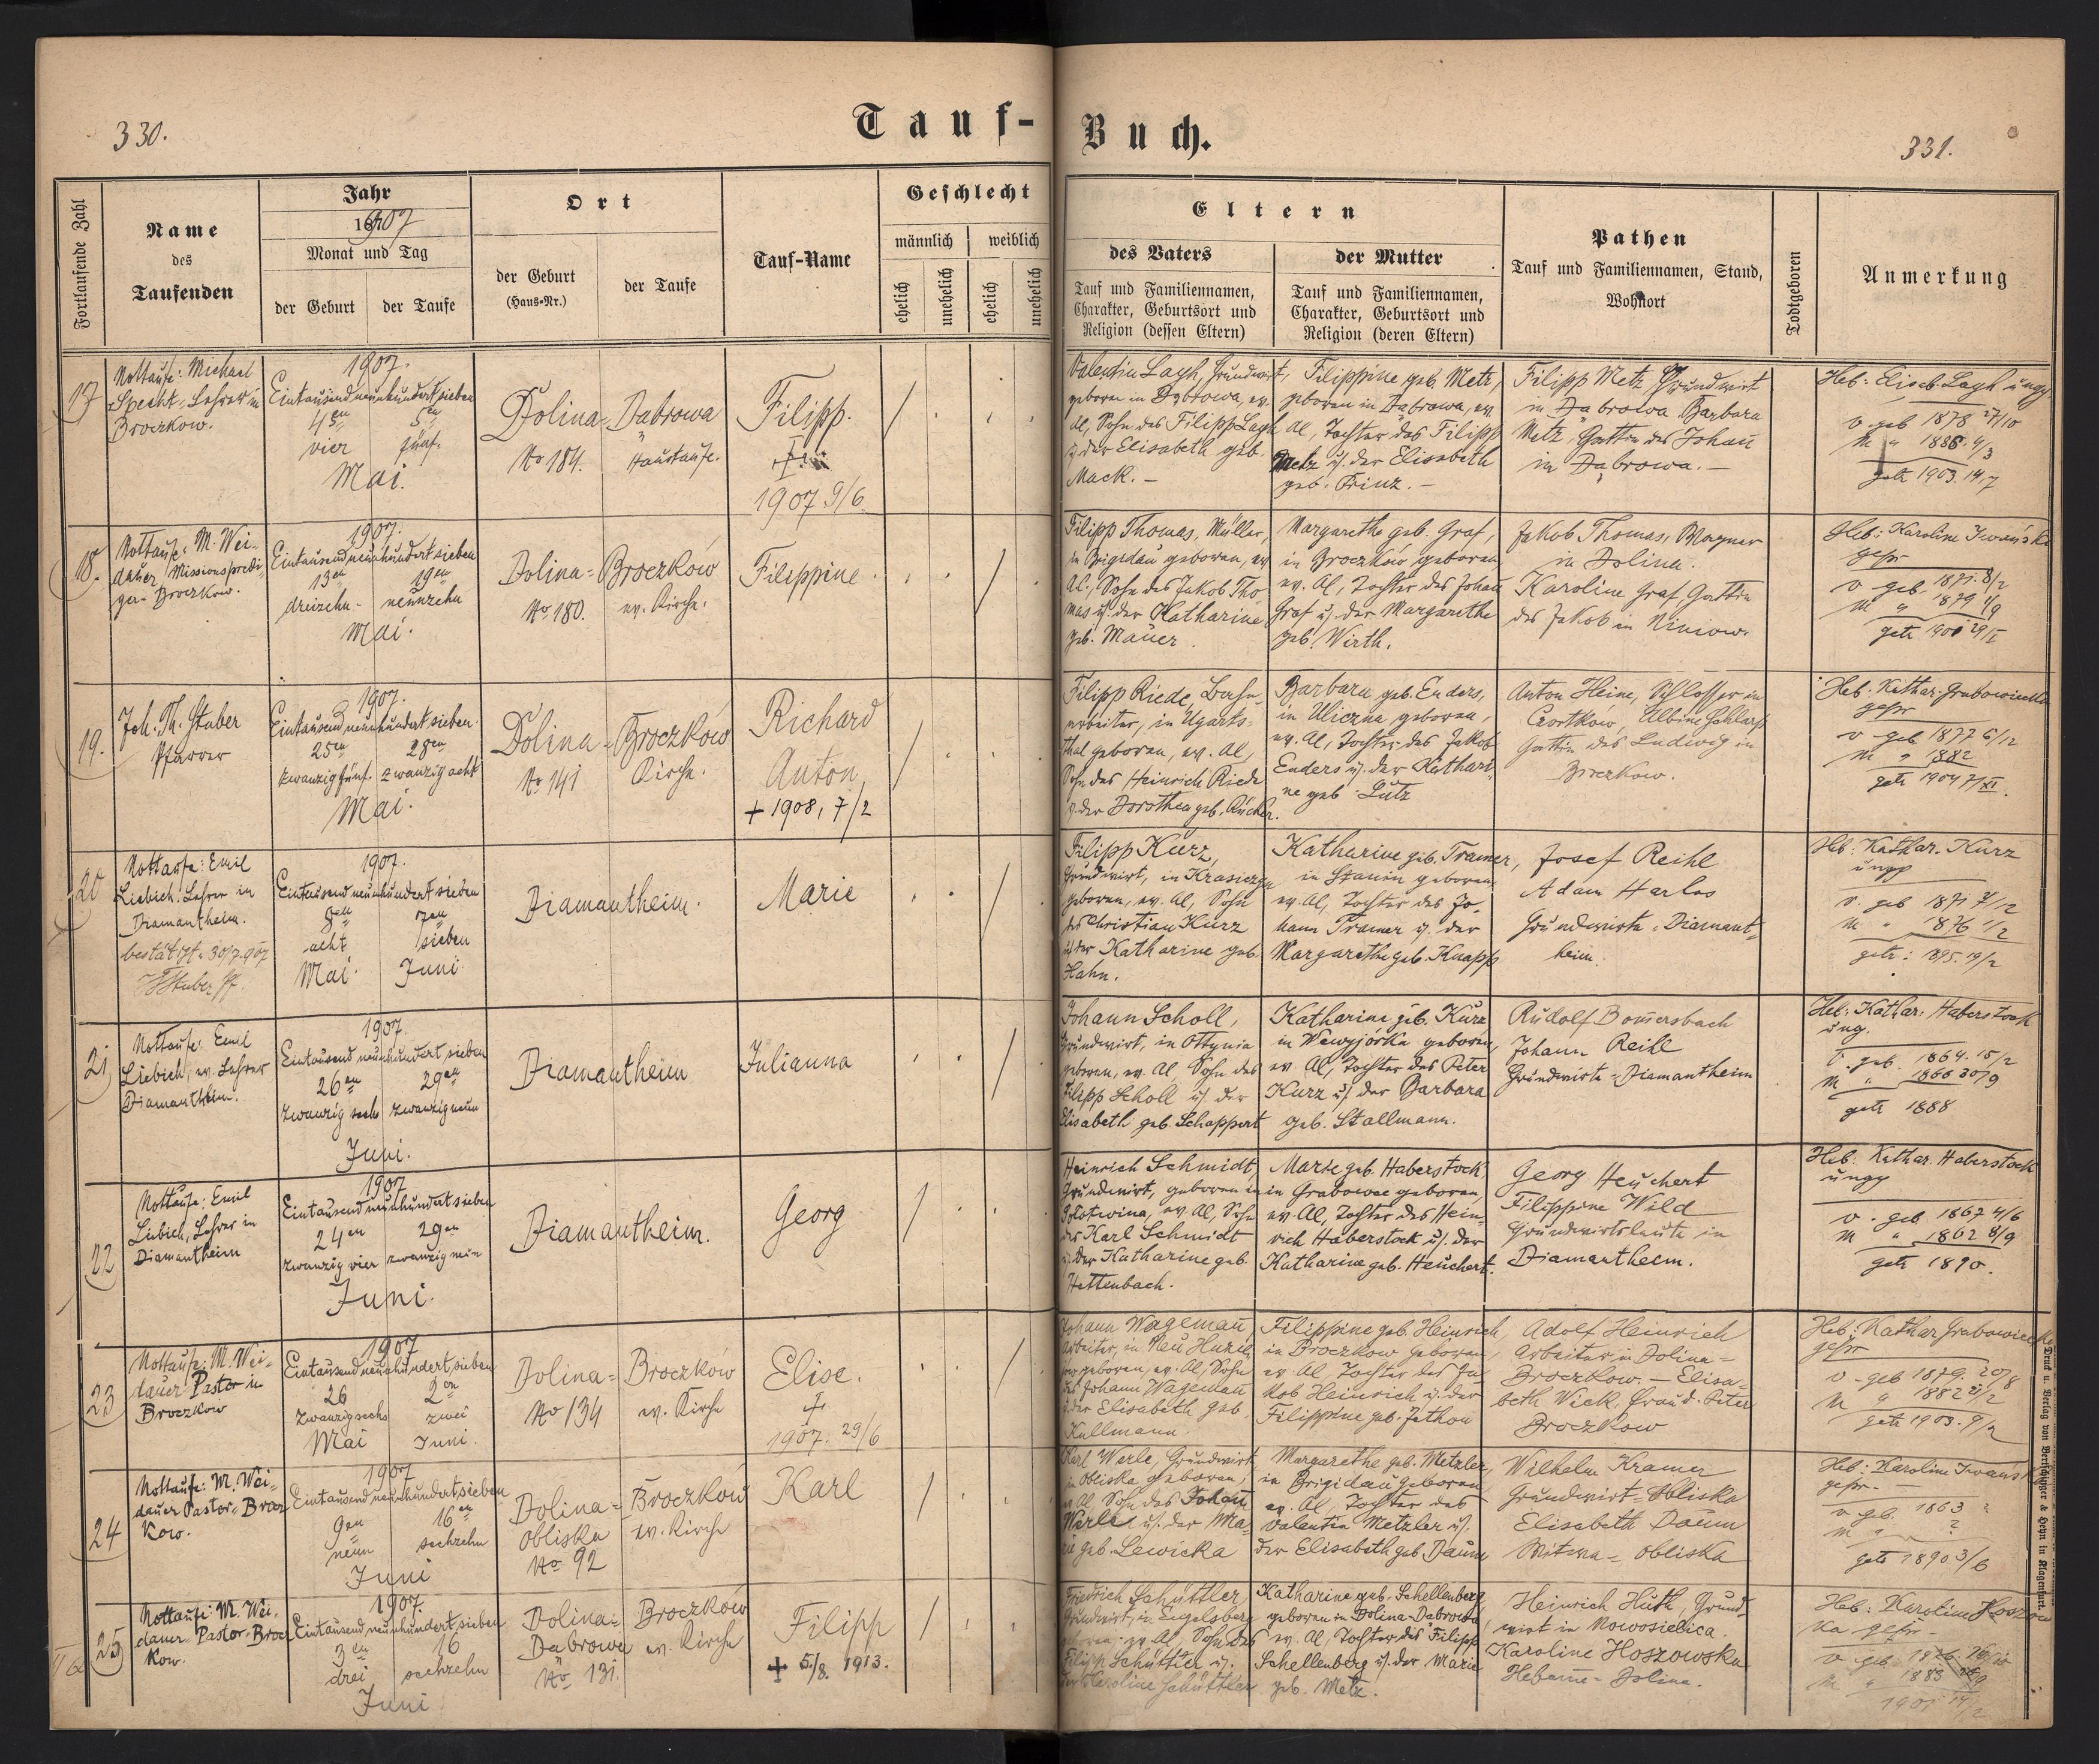 330.
Tauf-
Buch.
331.
Fortlaufende Zahl
Name
des
Taufenden
Jahr
1907
Monat und Tag
der Geburt
der Taufe
Ort
der Geburt
(Haus-Nr.)
der Taufe
Tauf-Name
Geschlecht
männlich
weiblich
ehelich
unehelich
ehelich
unehelich
Eltern
des Vaters
Tauf und Familiennamen,
Charakter, Geburtsort und
Religion (dessen Eltern)
der Mutter
Tauf und Familiennamen,
Charakter, Geburtsort und
Religion (deren Eltern)
Pathen
Tauf und Familiennamen, Stand,
Wohnort
Todtgeboren
Anmerkung
17
Nottaufe: Michael
Specht, Lehrer in
Broczkow.
1907.
Eintausend neunhundert sieben
4en 5en
vier fünf
Mai.
Dolina-Dąbrowa
No 184. Haustaufe.
Filipp.
1907 9/6
Valentin Lagh, Grundwirt,
geboren in Dąbrowa, ev.
Al, Sohn des Filipp Lagh
u. der Elisabeth geb.
Mack. –
Filippine geb. Metz,
geboren in Dąbrowa, ev.
Al, Tochter des Filipp
Metz u. der Elisabeth
geb. Prinz. –
Filipp Metz Grundwirt
in Dąbrowa Barbara
Metz, Gattin des Johañ
in Dąbrowa. –
Heb: Elisab. Lagh ungp
v. geb 1878 27/10
m " 1886. 4/3
getr 1903. 14/7
18.
Nottaufe: M. Wei-
dauer Missionspredi-
ger- Broczkow.
1907.
Eintausend neunhundert sieben
13en 19en
dreizehn- neunzehn
Mai.
Dolina=Broczków
No 180. ev. Kirche.
Filippine
Filipp Thomas, Müller,
in Brigidau geboren, ev
Al., Sohn des Jakob Tho
mas u. der Katharine
geb. Mauer.
Margarethe geb. Graf,
in Broczków geboren
ev. Al, Tochter des Johañ
Graf u. der Margarethe
geb. Wirth.
Jakob Thomas, Wagner
in Dolina.
Karoline Graf Gattin
des Jakob in Niniow.
Heb: Karoline Iwańska
gepr
v geb. 1871. 8/2
m " 1879 1/9
19.
Joh. Th. Stuber
Pfarrer
1907.
Eintausend neunhundert sieben
25en 28en
zwanzig fünf. zwanzig acht
Mai.
Dolina-Broczków
No 141 Kirche.
Richard
Anton
+ 1908, 7/2
Filipp Riede, Bahn-
arbeiter, in Ugarts-
thal geboren, ev. Al,
Sohn des Heinrich Riede
u. der Dorothea geb. Rücker.
Barbara geb. Enders,
in Uliczna geboren,
ev. Al, Tochter des Jakob
Enders u. der Kathari,
ne geb Lutz
Anton Heine, Schlosser in
Czortków, Albine
Gattin des Ludwig in
Broczkow.
Heb. Kathar. Grabowiecka
gepr
v geb 1877 6/12
m " 1882
getr 1904 7/XI.
20
Nottaufe: Emil
Liebich. Lehrer in
Diamantheim.
bestätigt. 30/7. 907
Stuber Pf.
1907.
Eintausend neunhundert sieben
8en 7en
acht sieben
Mai. Juni
Diamantheim.
Marie
Filipp Kurz,
Grundwirt, in
geboren, ev. Al, Sohn
des Christian Kurz
u. der Katharine geb
Hahn.
Katharine geb. Tramer,
in Stanin geboren
ev. Al, Tochter des Jo-
hann Tramer u. der
Margarethe geb. Knapp
Josef Reihl
Adam Harlos
Grundwirte = Diamant-
heim.
Heb: Kathar. Kurz
ungp
v. geb 1871 7/12
m " 1876 1/2
getr: 1895. 19/2
21
Nottaufe: Emil
Liebich, ev. Lehrer
Diamantheim.
1907.
Eintausend neunhundert sieben
26en 29en
zwanzig sechs zwanzig neun
Juni.
Diamantheim
Julianna
Johann Scholl,
Grundwirt, in Ottynia
geboren, ev. Al, Sohn des
Filipp Scholl u. der
Elisabeth geb. Schappert
Katharine geb. Kurz
in geboren,
ev Al, Tochter des Peter
Kurz u. der Barbara
geb. Stallmann.
Rudolf Bom̃ersbach
Johann Reihl
Grundwirte = Diamantheim
Heb: Kathar. Haberstock
ung.
v. geb. 1864. 15/2
m " 1866 30/9
getr 1888
22
Nottaufe: Emil
Liebich, Lehrer in
Diamantheim
1907
Eintausend neunhundert sieben
24en 29en
zwanzig vier zwanzig neun
Juni.
Diamantheim.
Georg
Heinrich Schmidt
Grundwirt, geboren in
Sołotwina, ev. Al, Sohn
des Karl Schmidt
u. der Katharine geb.
Hettenbach.
Marie geb. Haberstock
in Grabowce geboren,
ev. Al, Tochter des Hein-
rich Haberstock u. der
Katharine geb. Heuchert.
Georg Heuchert
Filippine Wild
Grundwirtsleute in
Diamantheim.
Heb: Kathar. Haberstock
ungp
v. geb 1867 4/6
m " 1862 8/9
getr 1890.
23
Nottaufe: M. Wei-
dauer Pastor in
Broczkow
1907
Eintausend neunhundert sieben
26 2en
zwanzig sechs zwei
Mai Juni.
Dolina=Broczków
No 134 ev. Kirche
Elise.
1907. 29/6
Johann Wageman̄
Arbeiter, in Neu
geboren, ev. Al, Sohn
des Johann Wageman̄
u. der Elisabeth geb
Kullmann.
Filippine geb. Heinrich
in Broczkow geboren,
ev Al, Tochter des Ja
kob Heinrich u. der
Filippine geb. Jathou
Adolf Heinrich
Arbeiter in Dolina-
Broczkow. – Elisa-
beth Wick, Frau d. Peter
Broczkow
Heb: Kathar Grabowiecka
gepr
v. geb 1879. 20/8
m " 1882 21/2
getr 1903. 9/2
24
Nottaufe: M. Wei-
dauer Pastor. Brocz
kow.
1907
Eintausend neunhundert sieben
9en 16en
neun sechzehn
Juni
Dolina= Broczków
Obliska ev. Kirche
No 92
Karl
Karl Werle, Grundwirt
in Obliska geboren,
ev Al. Sohn des Johañ
Werle u. der Ma-
rie geb. Lewicka
Margarethe geb. Metzler,
in Brigidau geboren
ev. Al, Tochter des
Valentin Metzler u.
der Elisabeth geb Daum
Wilhelm Kramer
Grundwirt = Obliska
Elisabeth Daum
Witwe = Obliska
Heb: Karoline Iwańska
gepr. –
v. gb. 1863 ?
m " ?
getr 1890 3/6
25
Nottaufe: M. Wei-
dauer Pastor. Brocz
kow.
1907
Eintausend neunhundert sieben
3en 16
drei sechzehn
Juni
Dolina= Broczków
Dąbrowa ev. Kirche
No 131.
Filipp
+ 5/8. 1913.
Friedrich Schüttler,
Grundwirt, in Engelsberg
geboren, ev. Al, Sohn des
Filipp Schüttler u.
der Karoline Schüttler
Katharine geb. Schellenberg
geboren in Dolina-Dąbrowa
ev. Al, Tochter des Filipp
Schellenberg u. der Marie
geb. Metz.
Heinrich Huth, Grund-
wirt in Nowosielica.
Karoline Hoszowska
Hebam̄e = Dolina.
Heb: Karoline Hoszows
ka gepr –
Druck u. Verlag von Bertschinger & Heyn in Klagenfurt.